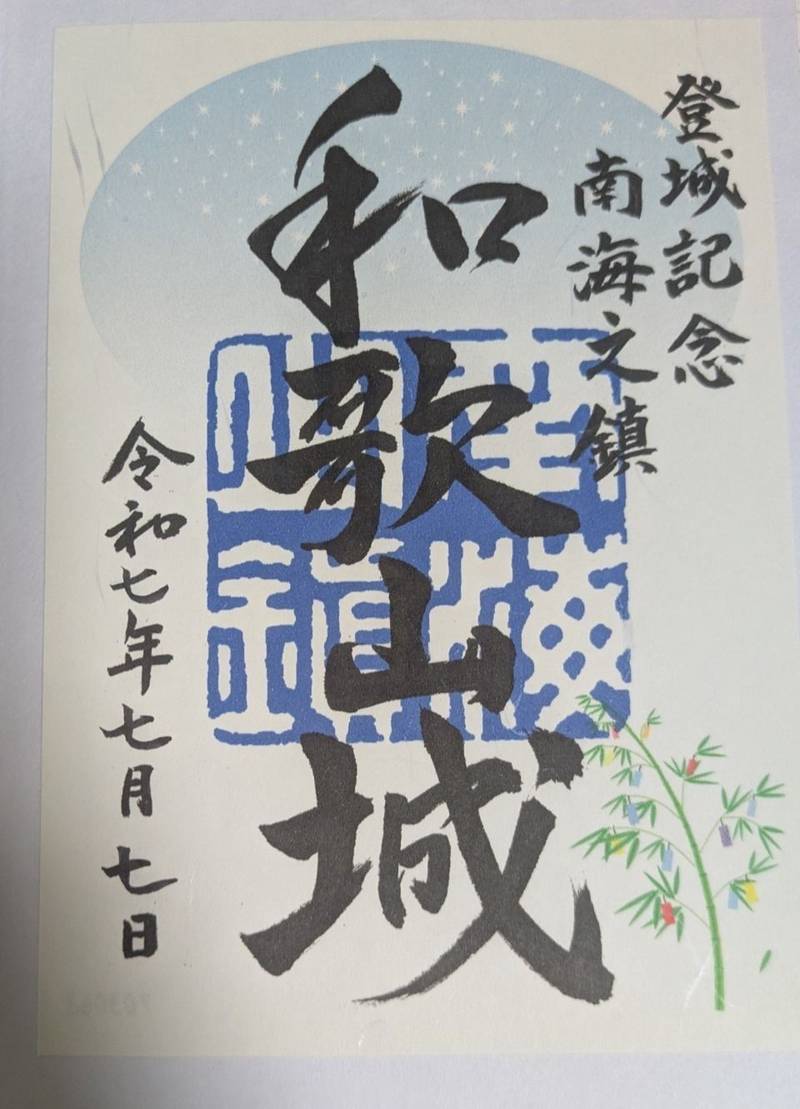 登城記念
南海之鎮
和歌山城
令和七年七月七日